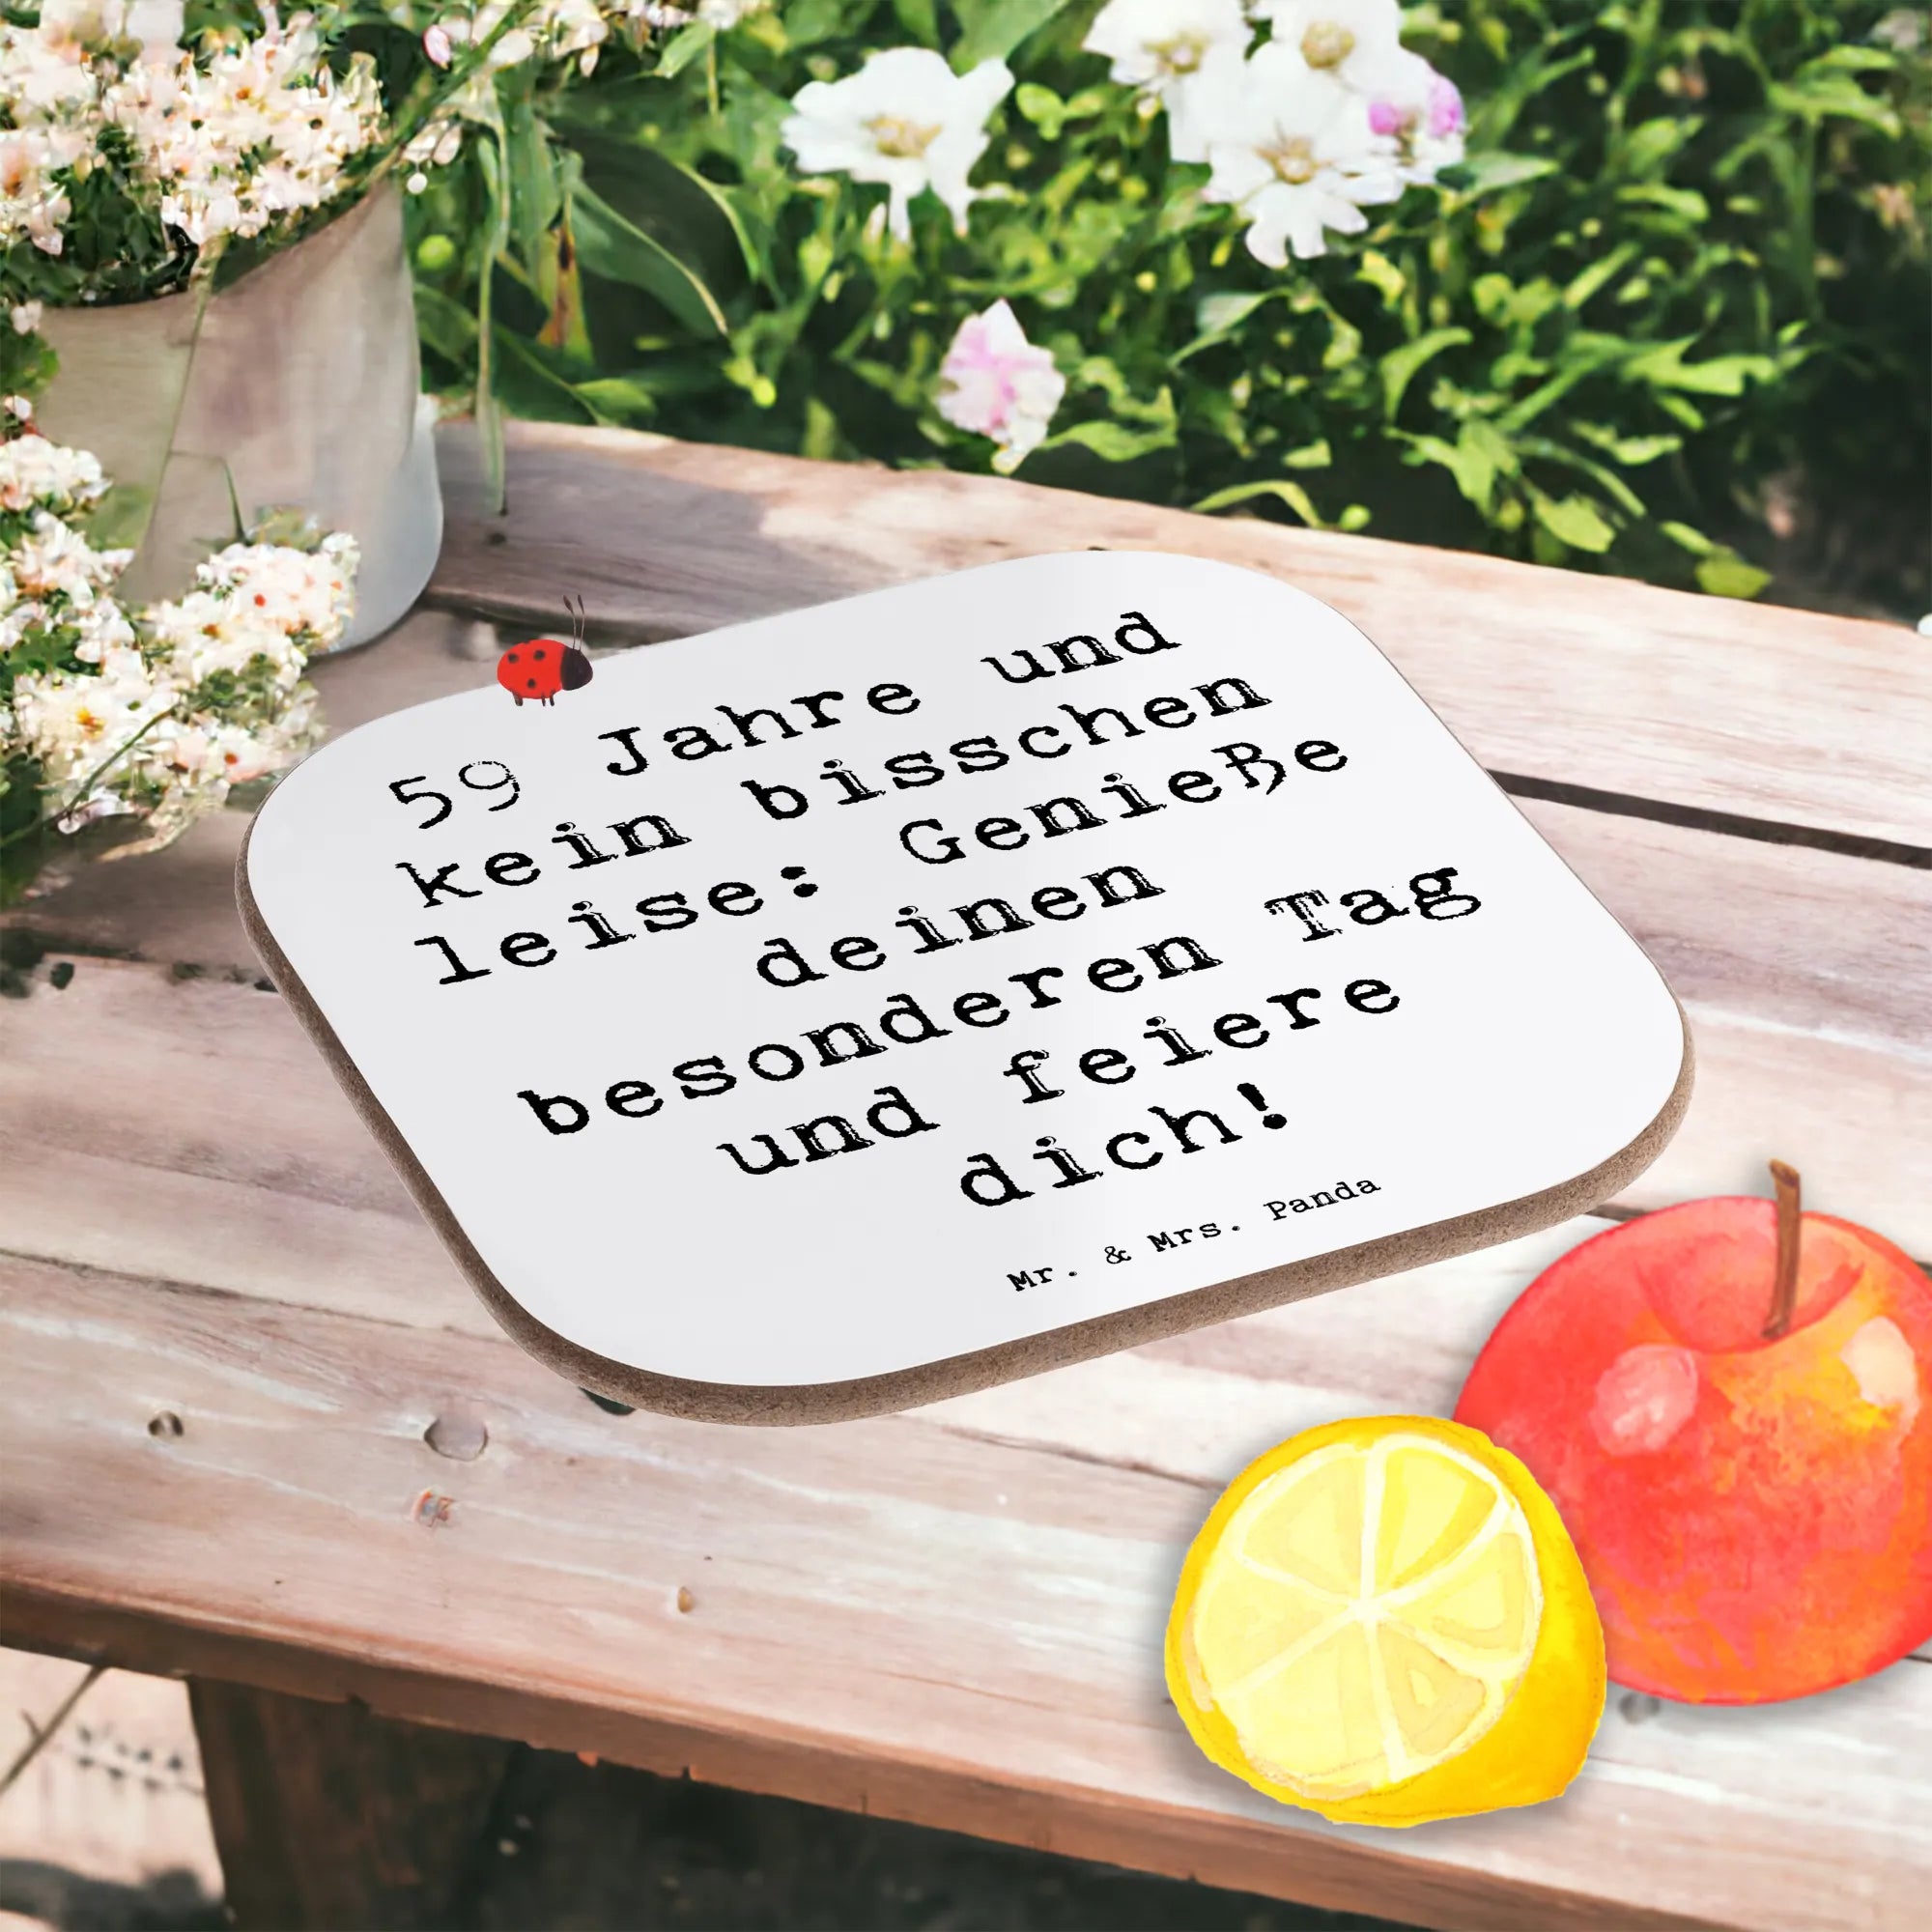 59 Jahre und
kein bisschen
leise: Genieße
deinen
besonderen Tag
und feiere
dich!
Mr. & Mrs. Panda